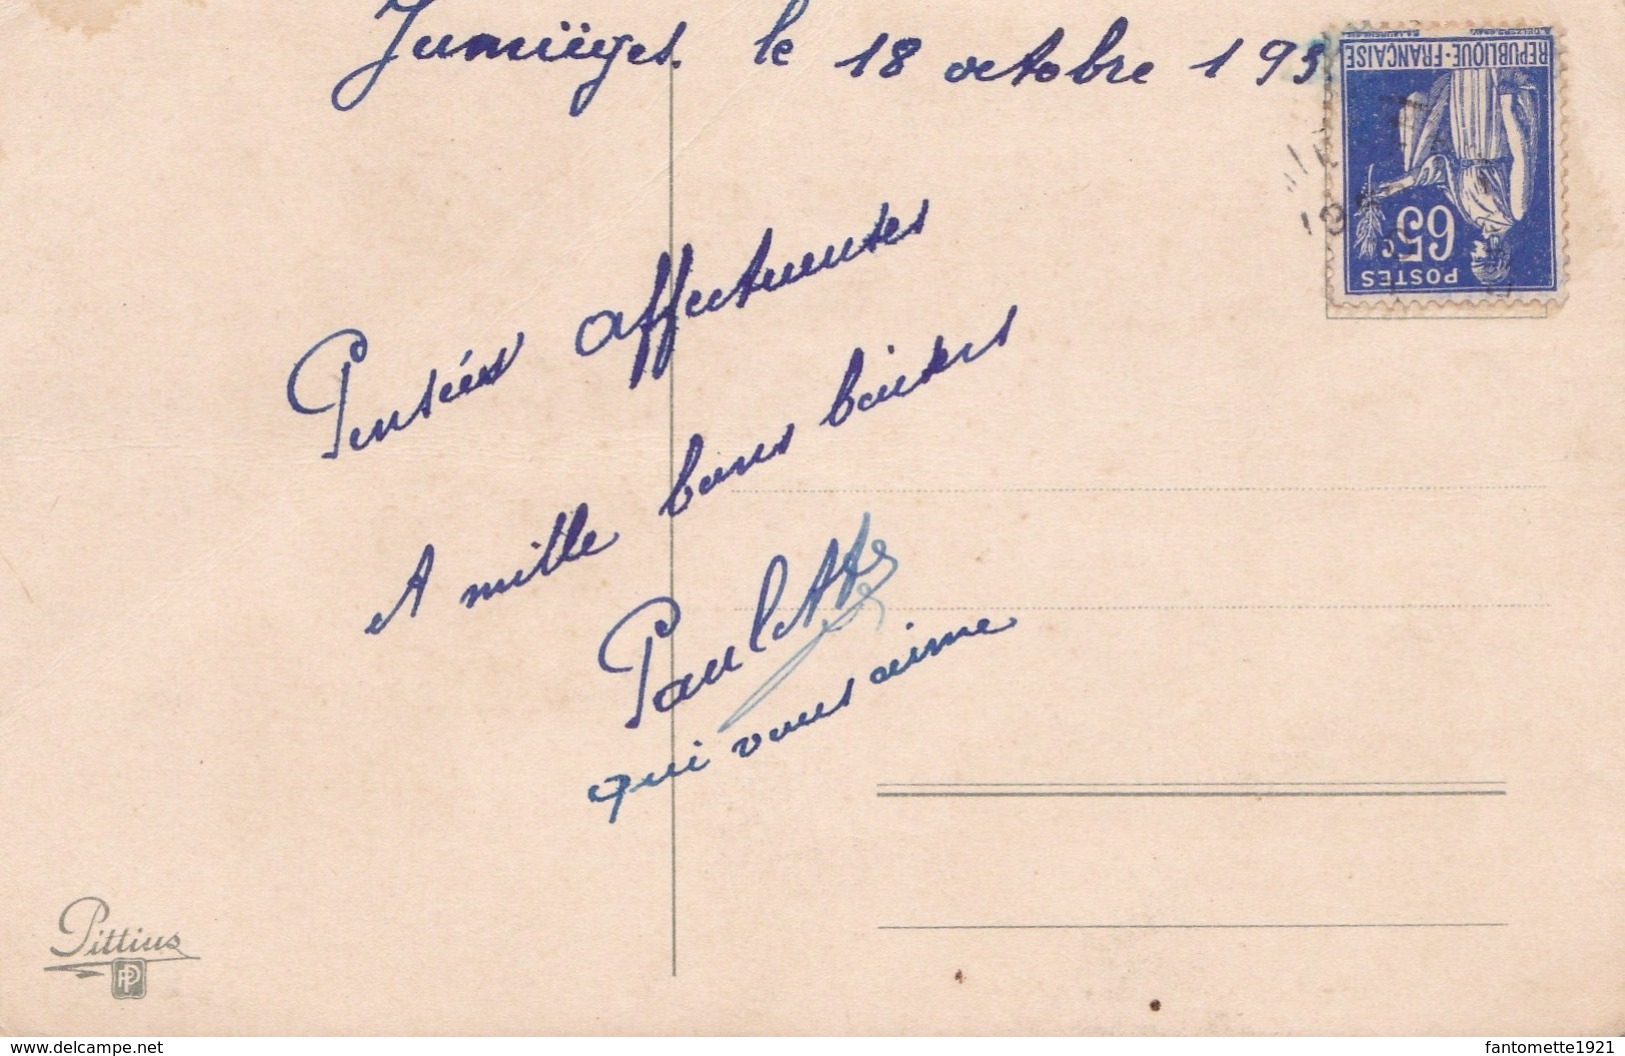 Jumièges le 18 octobre 193
REPUBLIQUE-FRANÇAISE
65c
POSTES
Pensées affectueuses
et mille bons baisers
Paulette
qui vous aime
Pittius
PP
www.delcampe.net
fantomette1921